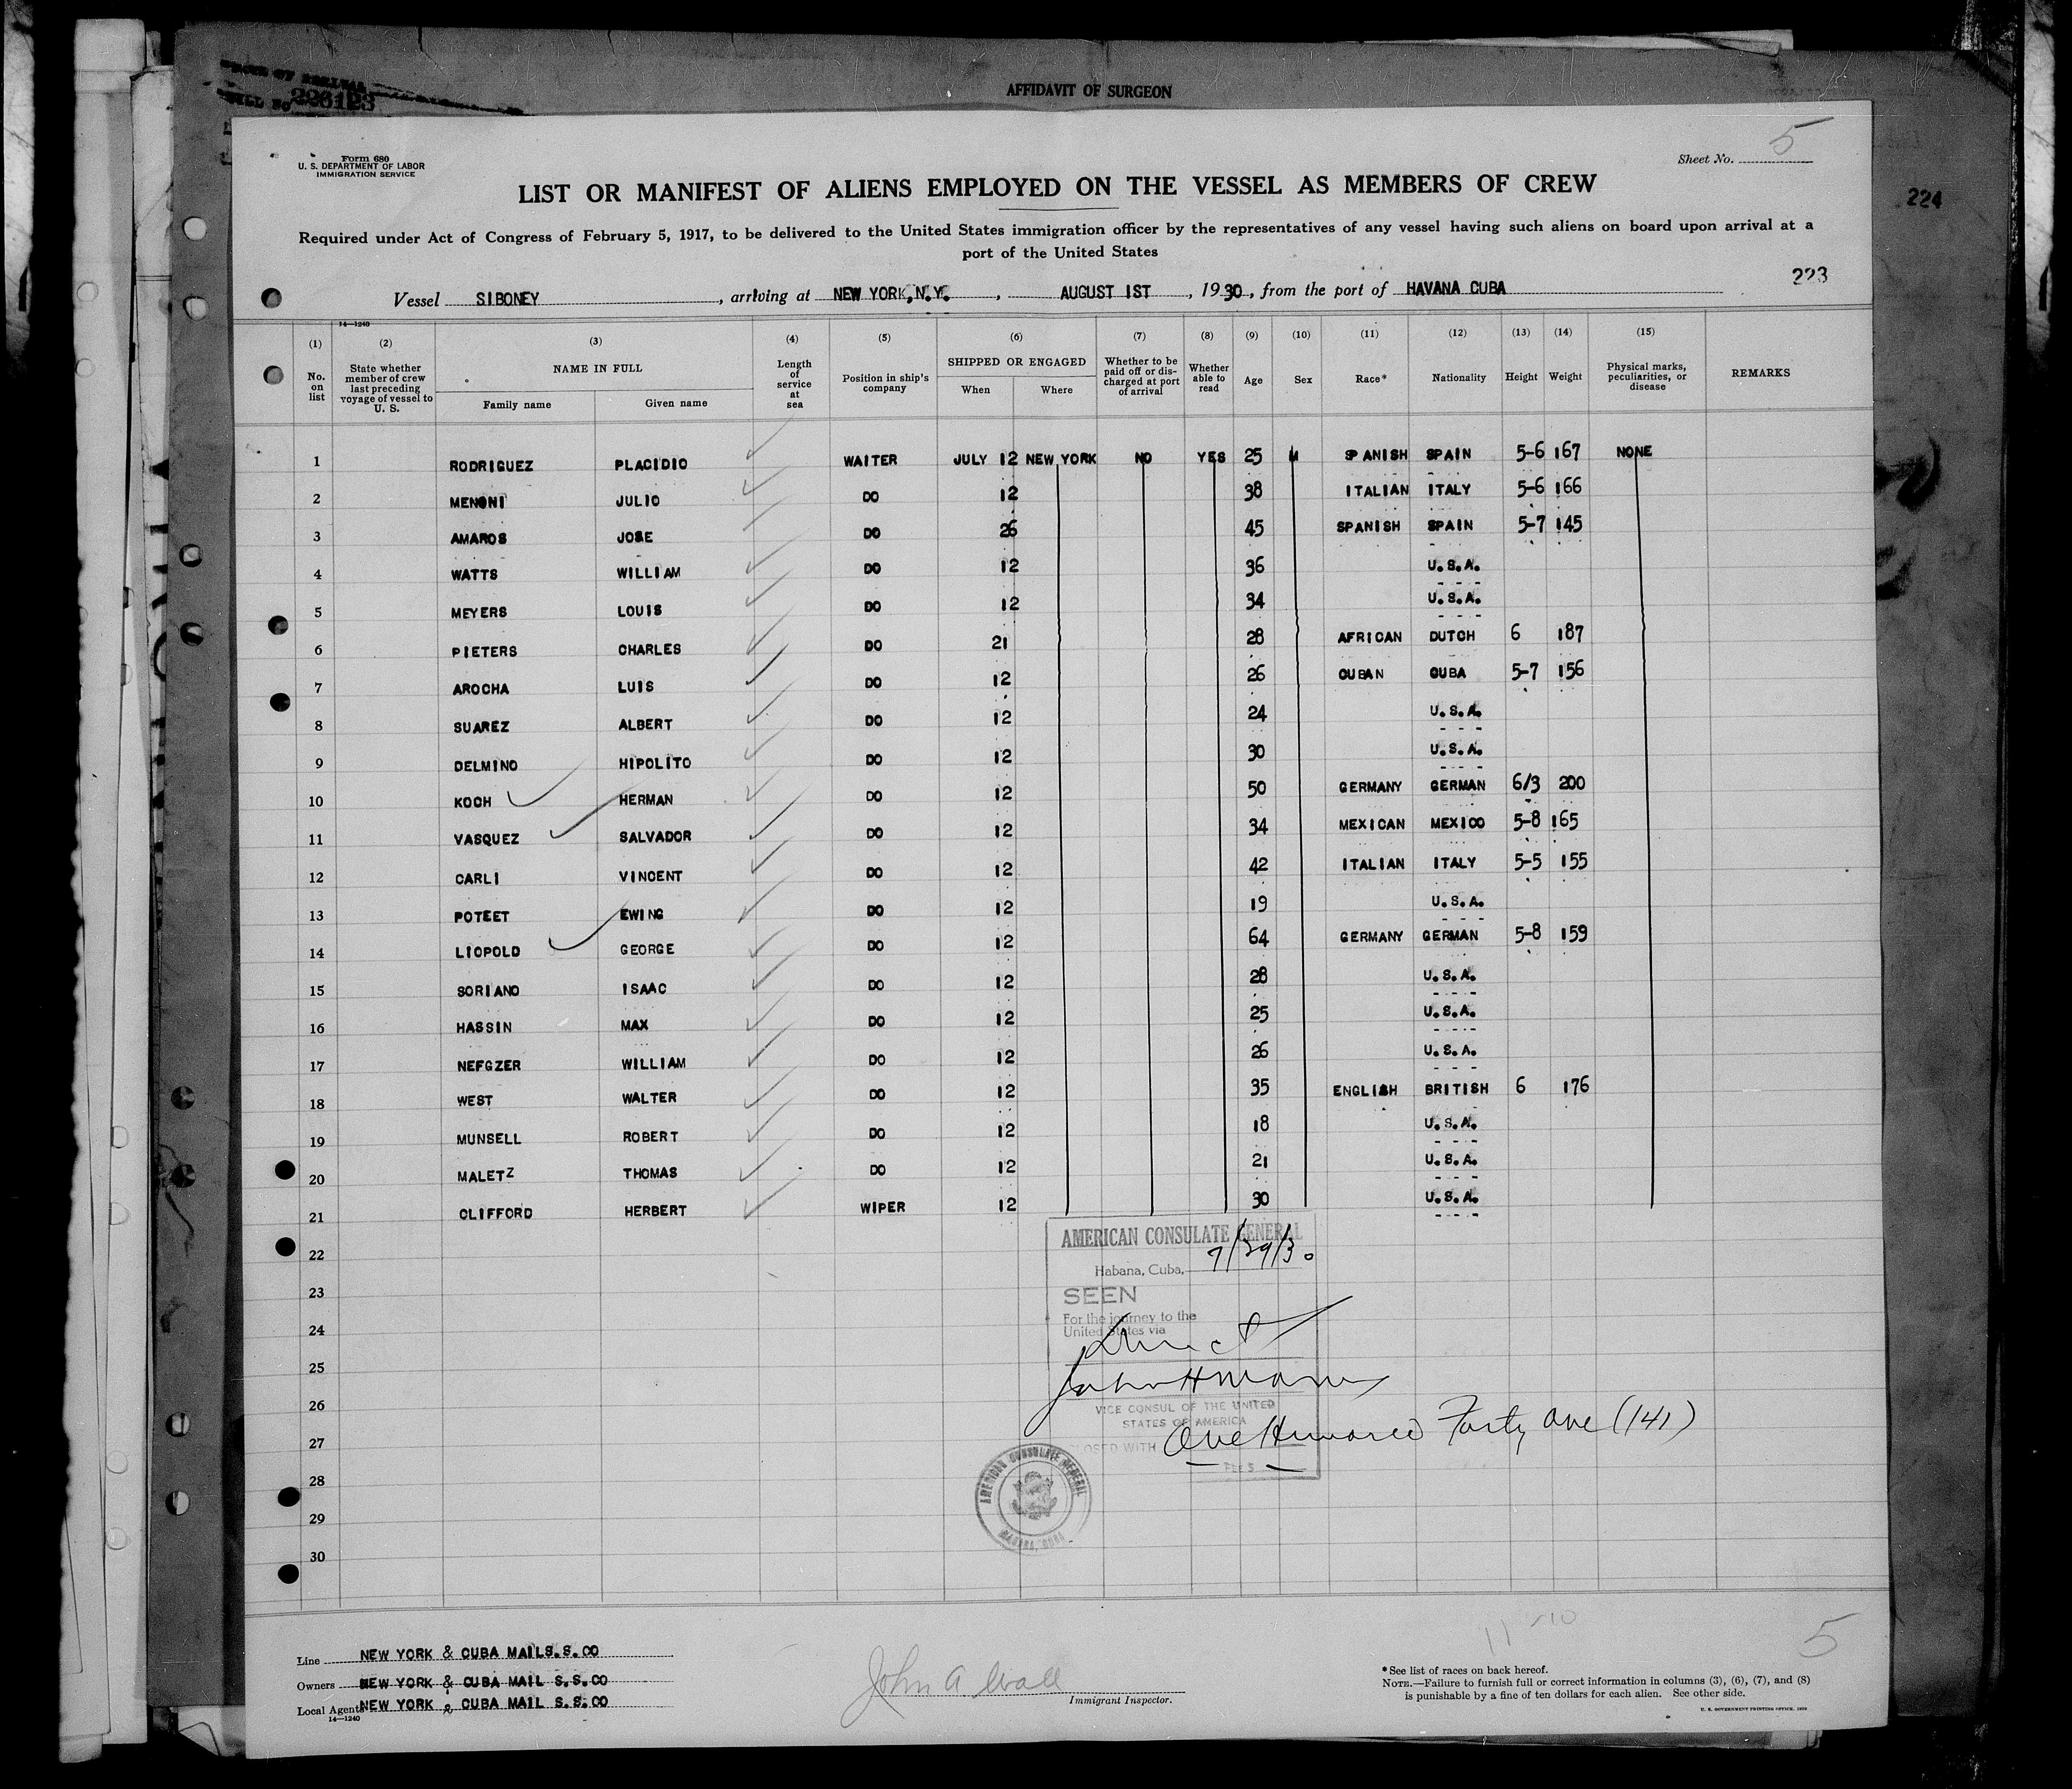 AFFIDAVIT OF SURGEON
226123
Form 680
U. S. DEPARTMENT OF LABOR
IMMIGRATION SERVICE
Sheet No. 5
224
LIST OR MANIFEST OF ALIENS EMPLOYED ON THE VESSEL AS MEMBERS OF CREW
Required under Act of Congress of February 5, 1917, to be delivered to the United States immigration officer by the representatives of any vessel having such aliens on board upon arrival at a
port of the United States
223
Vessel SIBONEY, arriving at NEW YORK, N.Y., AUGUST 1ST, 1930, from the port of HAVANA CUBA
14—1240
(1) (2) (3) (4) (5) (6) (7) (8) (9) (10) (11) (12) (13) (14) (15)
No. on list State whether member of crew last preceding voyage of vessel to U. S. NAME IN FULL Family name Given name Length of service at sea Position in ship's company SHIPPED OR ENGAGED When Where Whether to be paid off or discharged at port of arrival Whether able to read Age Sex Race* Nationality Height Weight Physical marks, peculiarities, or disease REMARKS
1 RODRIGUEZ PLACIDIO WAITER JULY 12 NEW YORK NO YES 25 M SPANISH SPAIN 5-6 167 NONE
2 MENONI JULIO DO 12 38 ITALIAN ITALY 5-6 166
3 AMAROS JOSE DO 26 45 SPANISH SPAIN 5-7 145
4 WATTS WILLIAM DO 12 36 U.S.A.
5 MEYERS LOUIS DO 12 34 U.S.A.
6 PIETERS CHARLES DO 21 28 AFRICAN DUTCH 6 187
7 AROCHA LUIS DO 12 26 CUBAN CUBA 5-7 156
8 SUAREZ ALBERT DO 12 24 U.S.A.
9 DELMINO HIPOLITO DO 12 30 U.S.A.
10 KOCH HERMAN DO 12 50 GERMANY GERMAN 6/3 200
11 VASQUEZ SALVADOR DO 12 34 MEXICAN MEXICO 5-8 165
12 CARLI VINCENT DO 12 42 ITALIAN ITALY 5-5 155
13 POTEET EWING DO 12 19 U.S.A.
14 LIOPOLD GEORGE DO 12 64 GERMANY GERMAN 5-8 159
15 SORIANO ISAAC DO 12 28 U.S.A.
16 HASSIN MAX DO 12 25 U.S.A.
17 NEFGZER WILLIAM DO 12 26 U.S.A.
18 WEST WALTER DO 12 35 ENGLISH BRITISH 6 176
19 MUNSELL ROBERT DO 12 18 U.S.A.
20 MALETZ THOMAS DO 12 21 U.S.A.
21 CLIFFORD HERBERT WIPER 12 30 U.S.A.
22
23
24
25
26
27
28
29
30
AMERICAN CONSULATE GENERAL
Habana, Cuba, 7/29/30
SEEN
For the journey to the
United States via
direct
VICE CONSUL OF THE UNITED
STATES OF AMERICA
CLOSED WITH One Hundred Forty one (141)
AMERICAN CONSULATE GENERAL
HABANA, CUBA
11-10
5
Line NEW YORK & CUBA MAIL S.S. CO
Owners NEW YORK & CUBA MAIL S.S. CO
Local Agents NEW YORK & CUBA MAIL S.S. CO
14—1240
John A Wall
Immigrant Inspector.
*See list of races on back hereof.
NOTE.—Failure to furnish full or correct information in columns (3), (6), (7), and (8)
is punishable by a fine of ten dollars for each alien. See other side.